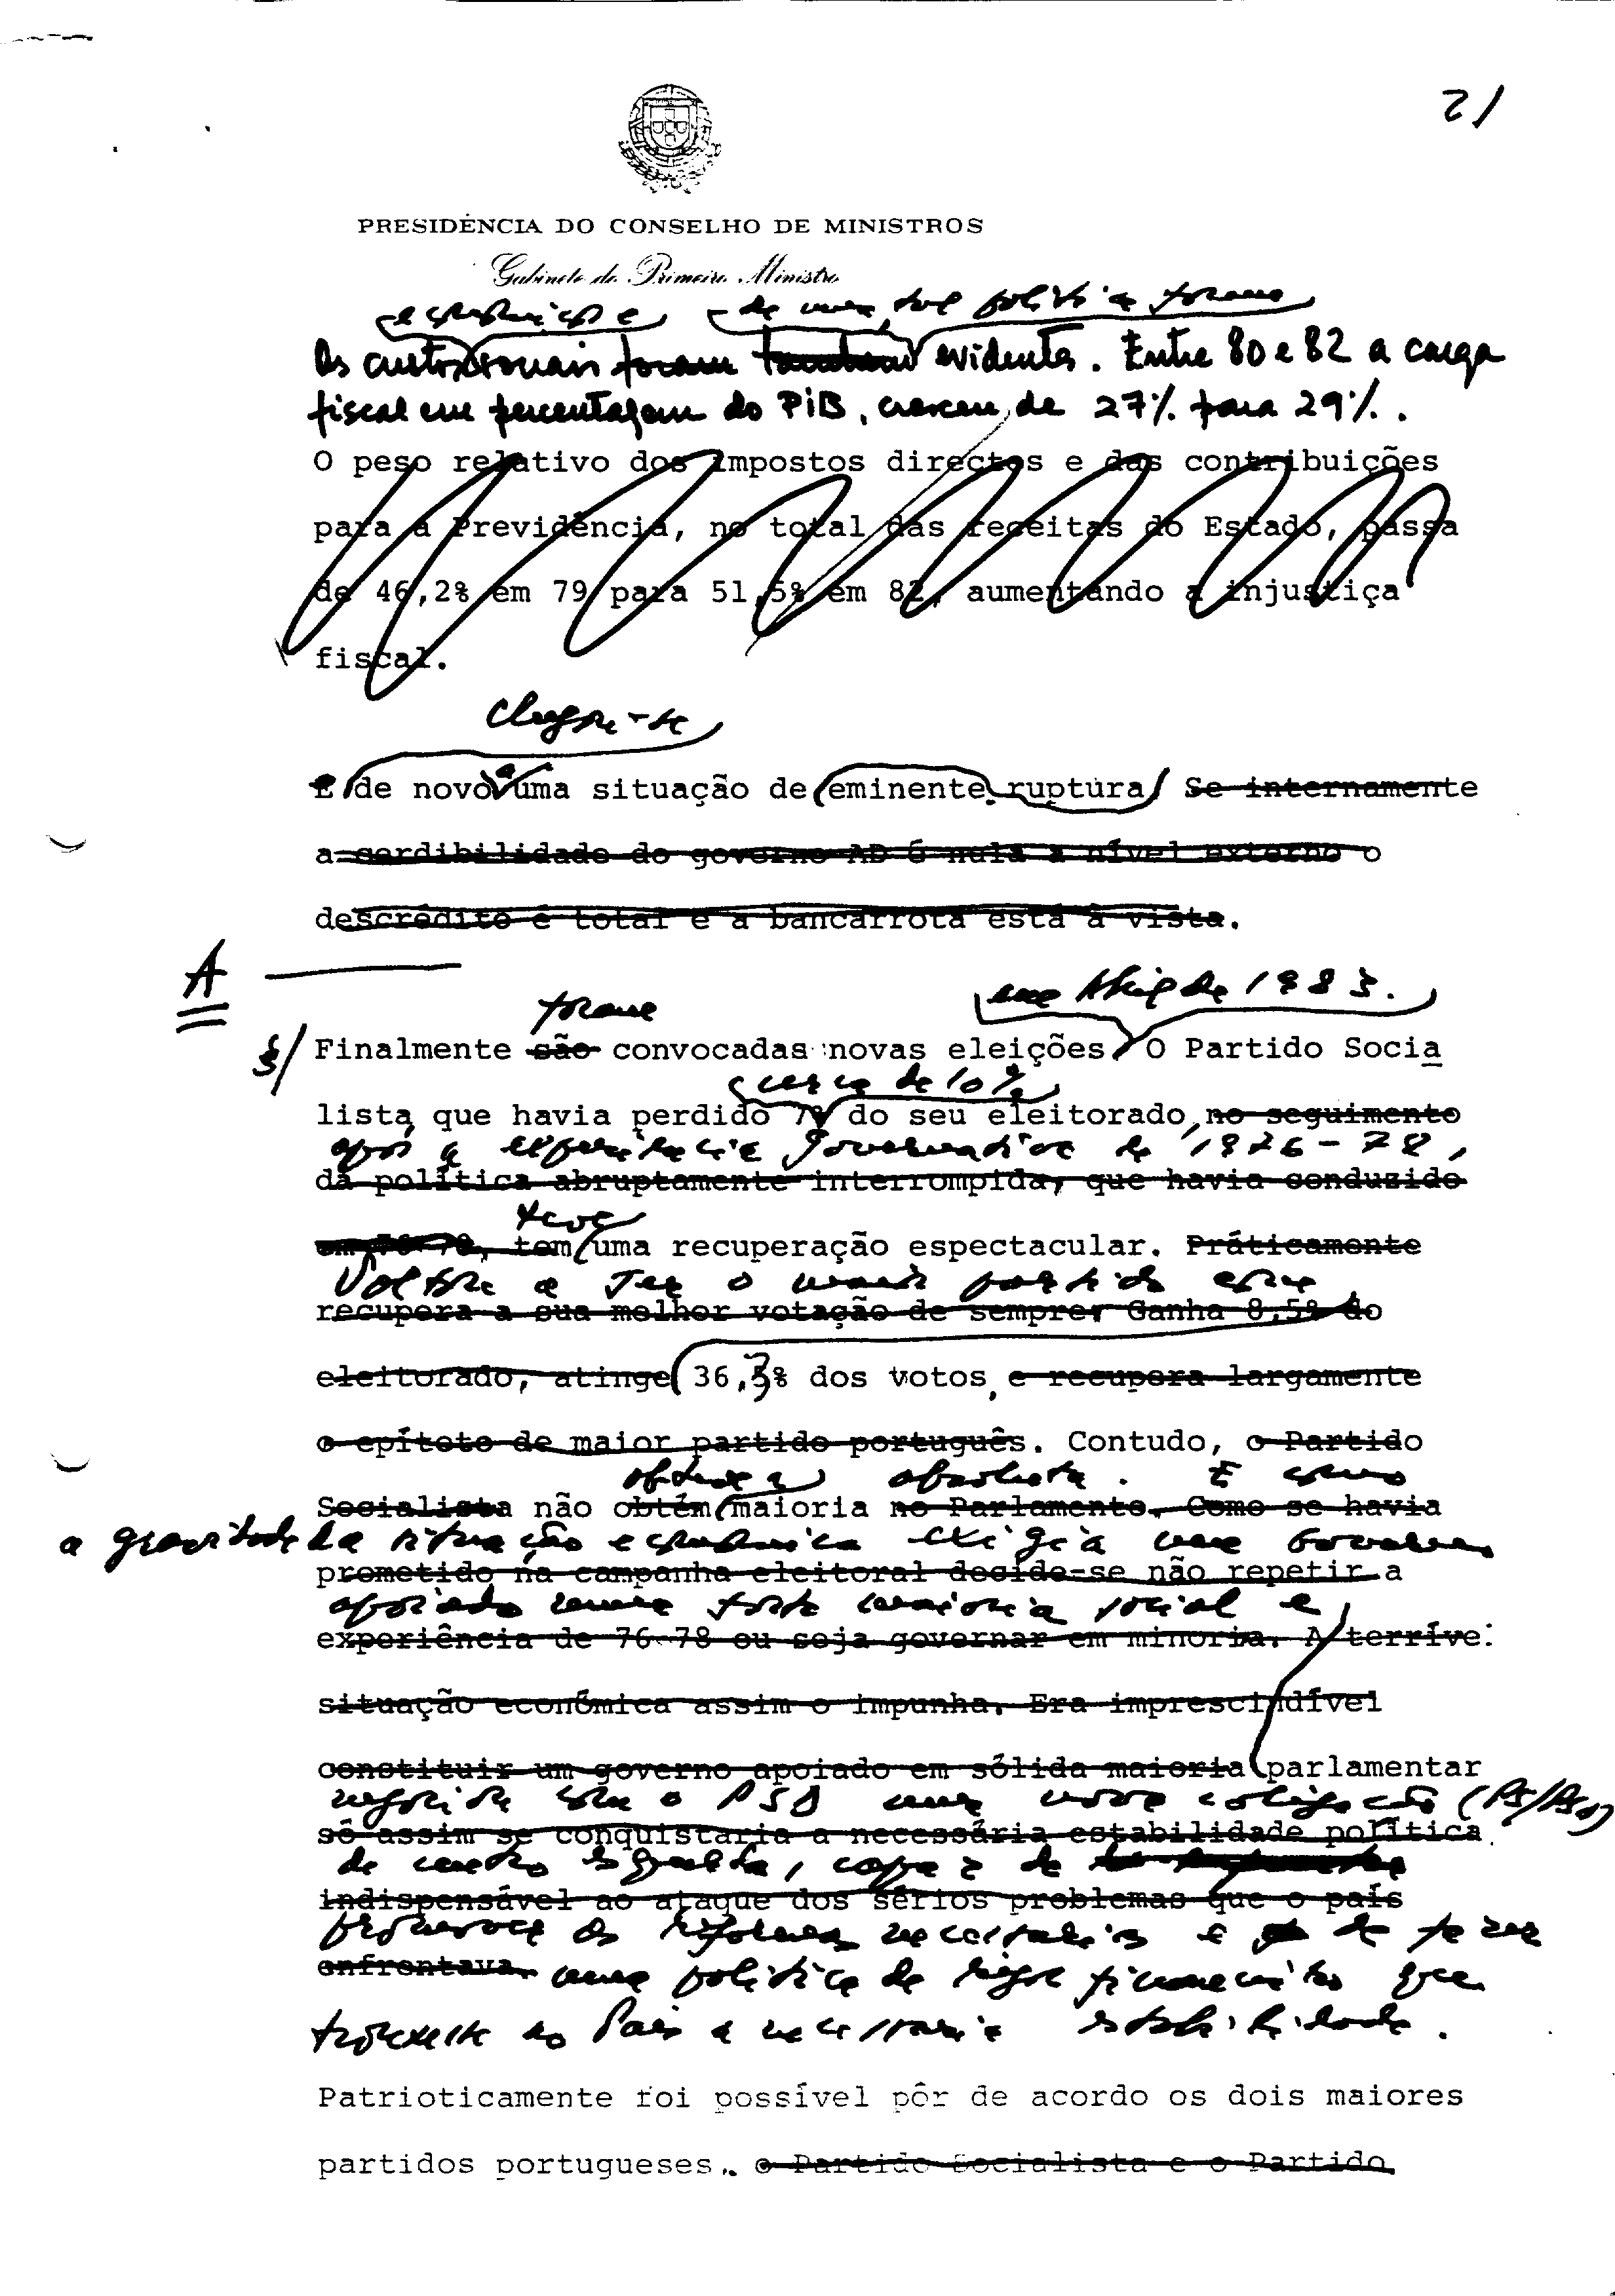 21
PRESIDÊNCIA DO CONSELHO DE MINISTROS
Gabinete do Primeiro Ministro
económicos e de uma tal política foram
Os custos sociais foram também evidentes. Entre 80 e 82 a carga
fiscal em percentagem do PIB, cresceu, de 27% para 29%.
O peso relativo dos impostos directos e das contribuições
para a Previdência, no total das receitas do Estado, passa
de 46,2% em 79 para 51,5% em 82, aumentando a injustiça
fiscal.
Chegou-se
É de novo a uma situação de eminente ruptura. Se internamente
a cerdibilidade do governo AD é nula a nível externo o
descrédito é total e a bancarrota está à vista.
A
foram em Abril de 1983.
§/ Finalmente são convocadas novas eleições O Partido Socia
cerca de 10%
lista, que havia perdido 7% do seu eleitorado, no seguimento
após a experiência governativa de 1976-78,
da política abruptamente interrompida, que havia conduzido
teve
em 76-78, tem uma recuperação espectacular. Práticamente
Voltou a ser o maior partido com
recupera a sua melhor votação de sempre. Ganha 8,5% do
eleitorado, atinge 36,3% dos votos, e recupera largamente
o epíteto de maior partido português. Contudo, o Partido
obteve a absoluta. E como
Socialista não obtém maioria no Parlamento. Como se havia
a gravidade da situação económica exigia um Governo
prometido na campanha eleitoral decide-se não repetir a
apoiado numa forte maioria social e
experiência de 76-78 ou seja governar em minoria. A terríve
situação económica assim o impunha. Era imprescindível
constituir um governo apoiado em sólida maioria parlamentar
negociou com o PSD uma nova coligação (PS/PSD)
só assim se conquistaria a necessária estabilidade política
de centro esquerda, capaz de
indispensável ao ataque dos sérios problemas que o país
promover as reformas necessárias e de fazer
enfrentava. uma política de rigor financeiro que
trouxesse ao País a necessária estabilidade.
Patrioticamente foi possível pôr de acordo os dois maiores
partidos portugueses. o Partido Socialista e o Partido